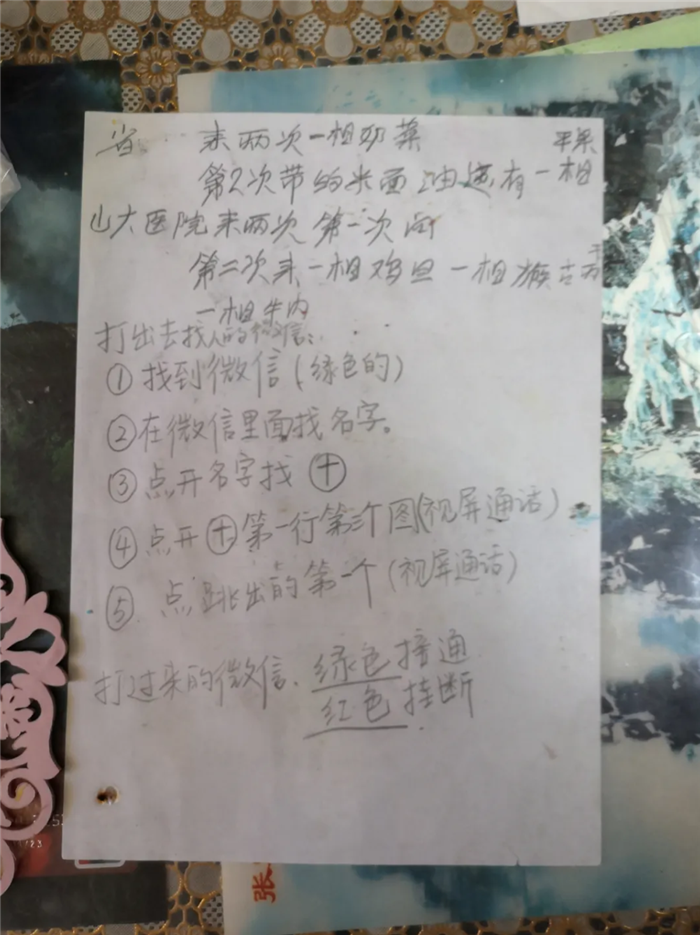 省 来两次一相 菜 苹果
第2次带的米面油还有一相
山大医院来两次 第一次
第二次来一相鸡旦 一相猴古
一相牛内
打出去找人的微信:
① 找到微信(绿色的)
②在微信里面找名字。
③点开名字找 ⊕
④点开⊕第一行第三个图(视屏通话)
⑤ 点跳出的第一个(视屏通话)
打过来的微信、绿色接通
红色挂断
张